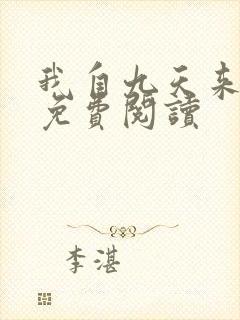 我自九天来
免費閱讀
李湛